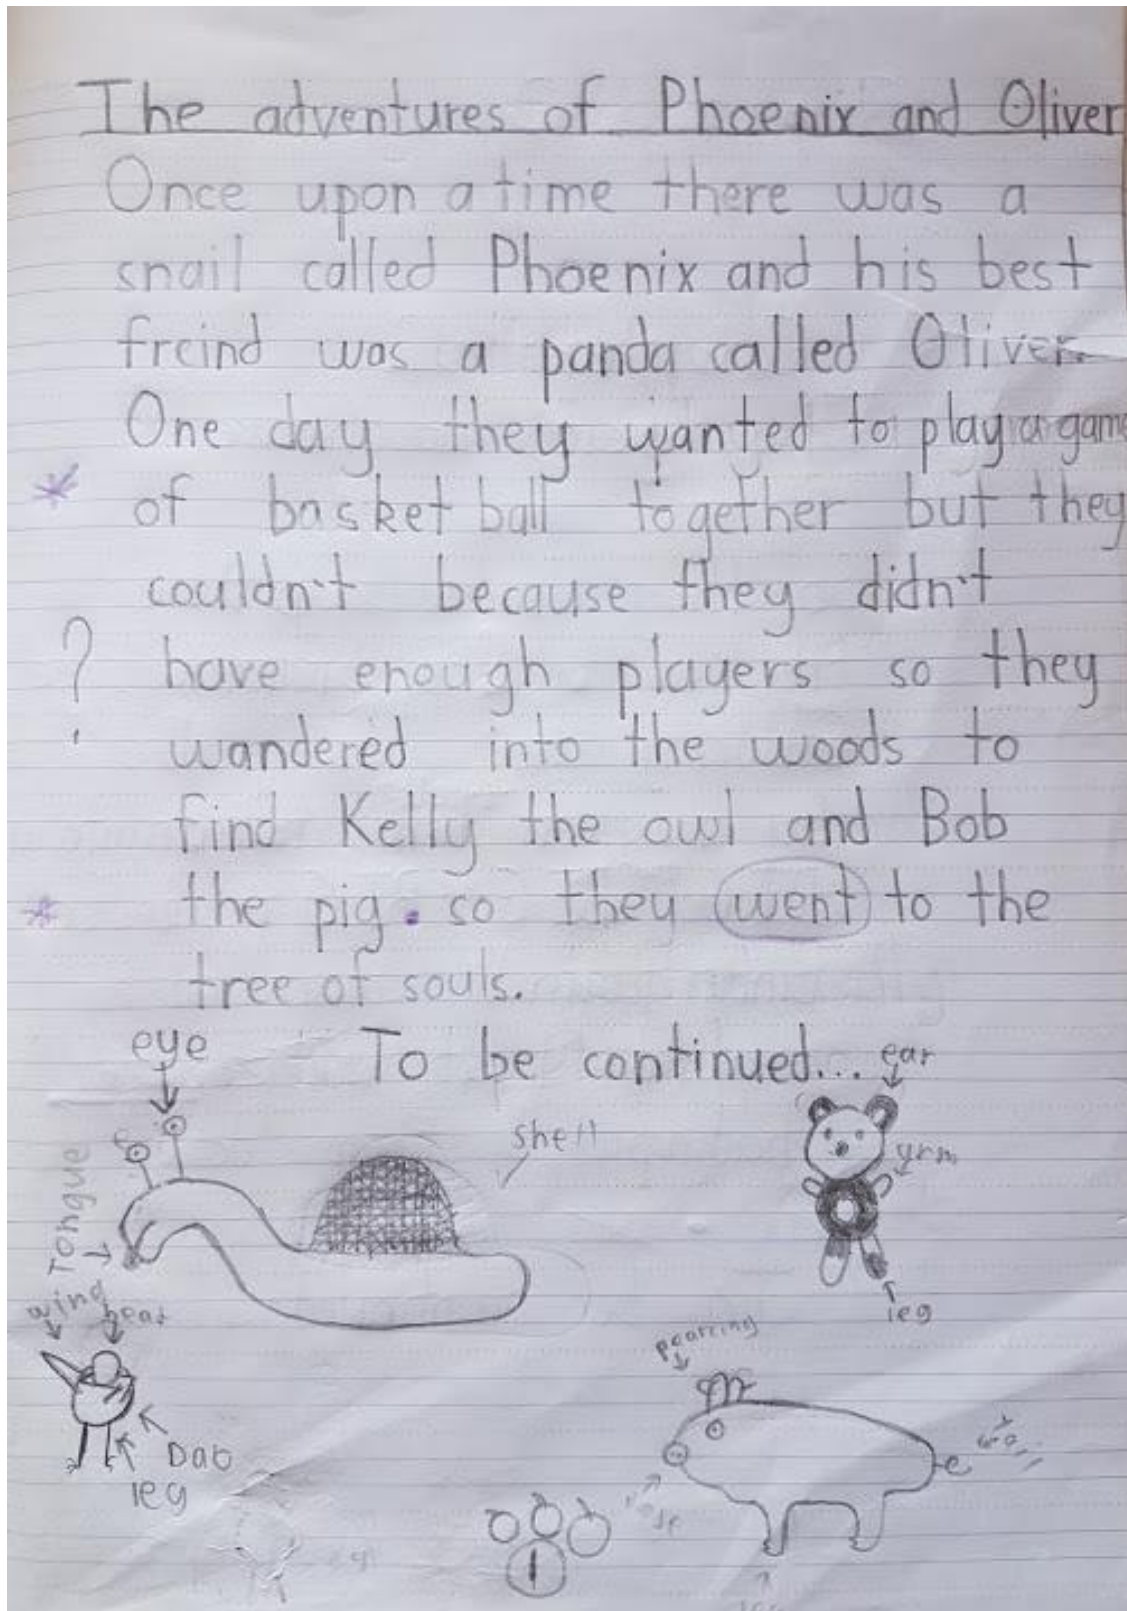 The adventures of Phoenix and Oliver
Once upon a time there was a
snail called Phoenix and his best
freind was a panda called Oliver
One day they wanted to play a game
of basket ball together but they
couldn't because they didn't
? have enough players so they
wandered into the woods to
find Kelly the owl and Bob
the pig. so they went to the
tree of souls.
To be continued...
eye
ear
shell
arm
Tongue
leg
wing
Dab
leg